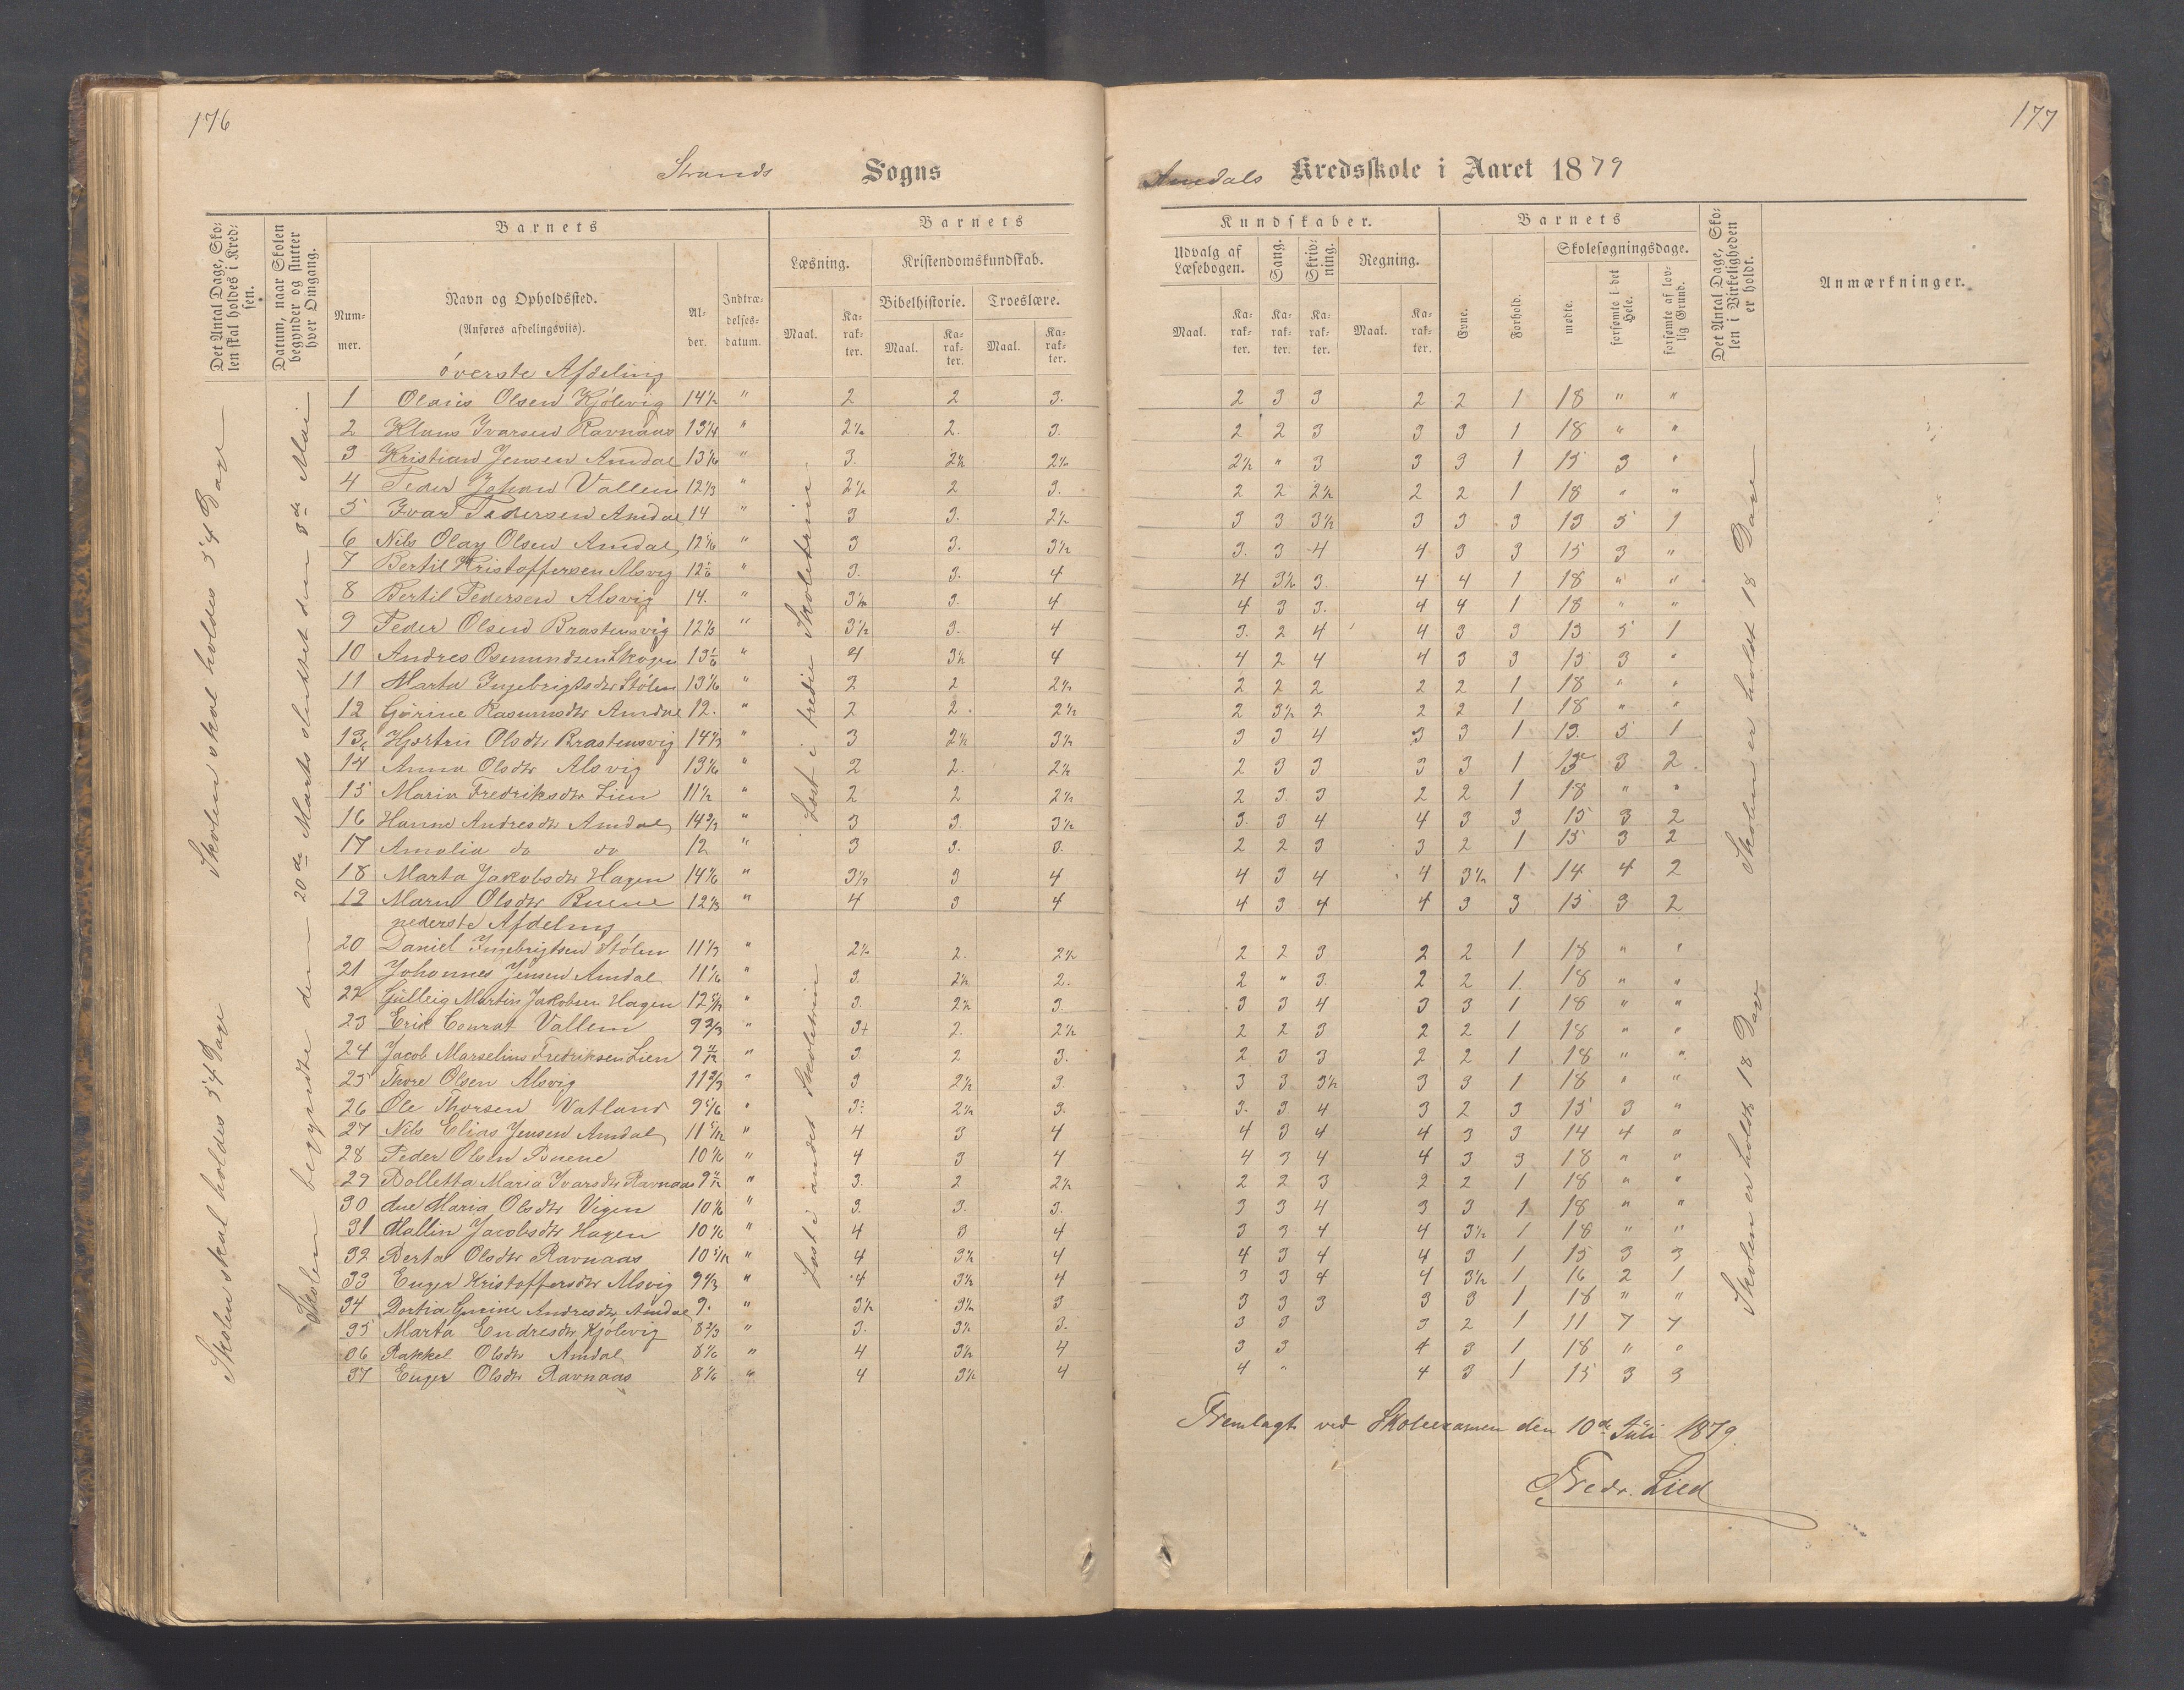 176
177
Strands Sogns
Amdals Kredsskole i Aaret 1879
Det Antal Dage, Skolen skal holdes i Kredsen.
Datum, naar Skolen begynder og slutter hver Omgang.
Barnets
Nummer.
Navn og Opholdssted.
(Anføres afdelingsviis).
Alder.
Indtrædelsesdatum.
Barnets
Læsning.
Kristendomskundskab.
Bibelhistorie.
Troeslære.
Maal.
Karakter.
Maal.
Karakter.
Maal.
Karakter.
Kundskaber.
Udvalg af Læsebogen.
Sang.
Skrivning.
Regning.
Maal.
Karakter.
Karakter.
Karakter.
Maal.
Karakter.
Barnets
Evne.
Forhold.
Skolesøgningsdage.
mødte.
forsømte i det Hele.
forsømte af lovlig Grund.
Det Antal Dage, Skolen i Virkeligheden er holdt.
Anmærkninger.
Skolen skal holdes 54 Dage
Skolen skal holdes 54 Dage
Skolen begyndte den 20de Marts sluttet den 8de Mai
Læst i tredie Skoletrin
Læst i andet Skoletrin
Skolen er holdt 18 Dage
Skolen er holdt 18 Dage
øverste Afdeling
1 Olaus Olsen Kjølevig 14½ " 2 2 3. 2 3 3 2 2 1 18 " "
2 Klaus Ivarsen Ravnaas 13¼ " 2½ 2. 3. 2 2 3 3 3 1 18 " "
3 Kristian Jensen Amdal 13 1/6 " 3. 2½ 2½ 2½ " 3 3 3 1 15 3 "
4 Peder Johan Vallem 12 1/3 " 2½ 2 3. 2 2 2½ 2 2 1 18 " "
5 Ivar Pedersen Amdal 14 " 3 3. 2½ 3 3 3½ 3 3 3 13 5 1
6 Nils Olay Olsen Amdal 12 5/6 " 3 3. 3½ 3. 3 4 4 3 3 15 3 "
7 Bertil Kristoffersen Alsvig " 3. 3. 4 4 3½ 3. 4 4 1 18 " "
8 Bertil Pedersen Alsvig 14. " 3½ 3. 4 4 3 3. 4 4 1 18 " "
9 Peder Olsen Brastensvig 12 1/3 " 3½ 3. 4 3. 2 4 4 3 3 13 5 1
10 Andres Osmundsen Skogen 13 1/6 " 4 3½ 4 4 2 4 4 3 3 15 3 "
11 Marta Ingebrigtsdtr Stølen 13 1/6 " 2 2 2½ 2 2 2 2 2 1 18 " "
12 Gørine Rasmusdtr Amdal 12. " 2 2. 2½ 2 3½ 2 2 2 1 18 " "
13 Hjertrü Olsdtr Brastensvig 14 1/3 " 3 2½ 3½ 3 3 4 3 3 1 13. 5 1
14 Anna Olsdtr Alsvig 13 1/6 " 2 2. 2½ 2 3 3 3 3 1 3 2
15 Maria Fredriksdtr Lien 11½ " 2 2 2½ 2 3. 3 2 2 1 18 " "
16 Hanne Andresdtr Amdal 14 2/3 " 3 3. 3½ 3. 3 4 4 3 3 15 3 2
17 Amalia do do 12 " 3 3. 3. 2 2 3 3 2 1 15 3 2
18 Marta Jakobsdtr Hagen 14 1/6 " 3½ 3 4 4 3 4 4 3½ 1 14 4 2
19 Maru Olsdtr Buene 12 1/3 " 4 3 4 4 3 4 4 3 3 15 3 2
nederste Afdeling
20 Daniel Ingebrigtsen Stølen 11 1/3 " 2½ 2. 2½ 2 2 3 2 2 1 18 " "
21 Johannes Jensen Amdal 11 1/6 " 3. 2½ 2. 2 " 3. 2 2 1. 18 " "
22 Gulleig Martin Jakobsen Hagen 12 5/12 " 3. 2½ 3. 3 3 4 3 3 1 18 " "
23 Erik Conrat Vallem 9 2/3 " 3+ 2. 2½ 2 2 3 2 2 1 18 " "
24 Jacob Marselius Fredriksen Lien " 3. 2 3. 2 3 3 2 2 1 18 " "
25 Thore Olsen Alsvig 11 2/3 " 3 2½ 3. 3 3 3½ 3 3 1 18 " "
26 Ole Thorsen Vatland 9 5/6 " 3 2½ 3. 3. 3. 4 3 2 3 15 3 "
27 Nils Elias Jensen Amdal " 4 3 4 4 3 4 4 3 3 14 4 "
28 Peder Olsen Buene 10 1/6 " 4 3 4 4 3 4 4 3 3 18 " "
29 Bolletta Maria Ivarsdtr Ravnaas " 3. 2 2½ 2 2 3 2 2 1 18 " "
30 Ane Maria Olsdtr Vigen 10 1/6 " 3. 3. 3. 3 3 4 3 3 1 18 " "
31 Mallin Jacobsdtr Hagen 10 1/6 " 4 3 4 3 3 4 4 3½ 1 18 " "
32 Berta Olsdtr Ravnaas " 4 3½ 4 4 3 4 4 3 1 15 3 3
33 Enger Kristoffersdtr Alsvig " 4 3½ 4 3 3 4 4 3½ 1 16 2 1
34 Dortia Gurine Andresdtr Amdal 9. " 3½ 3½ 3 3 3 3 3 3 1 18 " "
35 Marta Endresdtr Kjølevig 8 2/3 " 3. 3½ 3. 3 3 3 2 1 11 7 7
36 Rakkel Olsdtr Amdal 8 1/6 " 4 3½ 4 3 3 4 3 1 18 " "
37 Enger Olsdtr Ravnaas 8 1/6 " 4 3½ 4 4 " 4 3 1 15 3 3
Fremlagt ved Skoleexamen den 10de Juli 1879.
Fredr. Lied